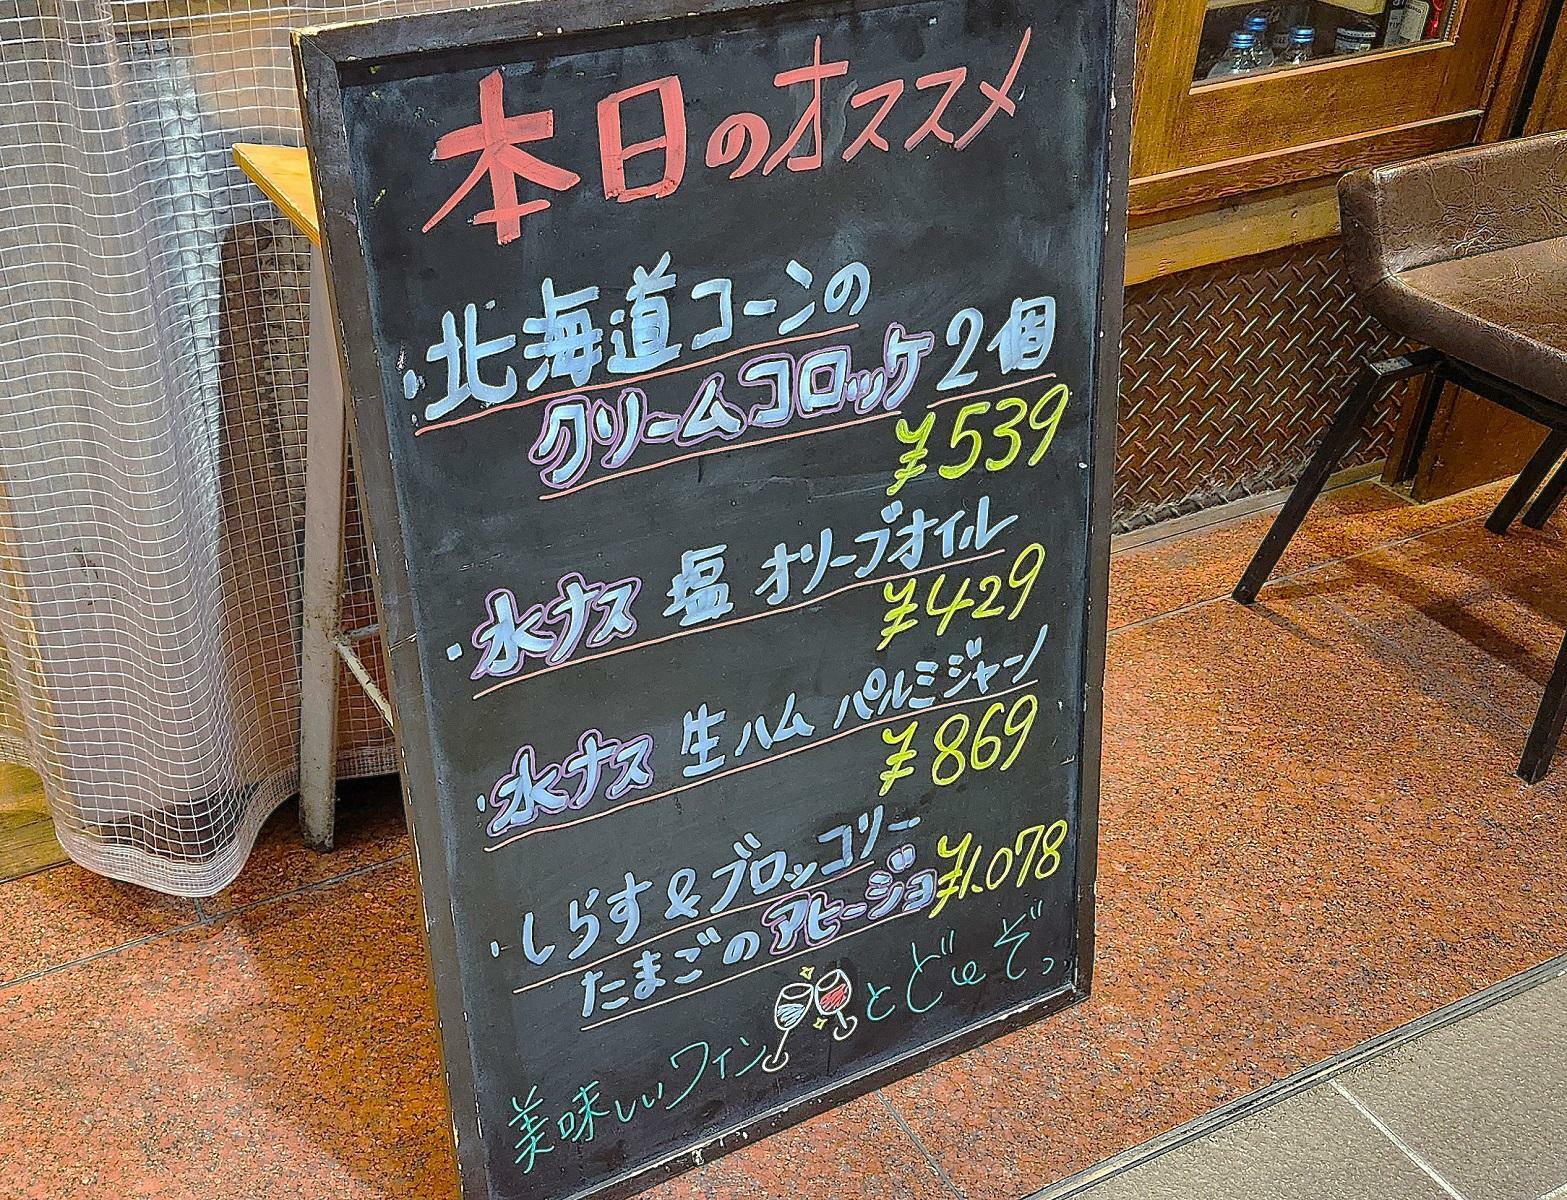 本日のオススメ
・北海道コーンの
クリームコロッケ 2個
¥539
・水ナス 塩 オリーブオイル
¥429
・水ナス 生ハム パルミジャーノ
¥869
・しらす&ブロッコリー
たまごのアヒージョ ¥1.078
美味しいワインとどうぞっ